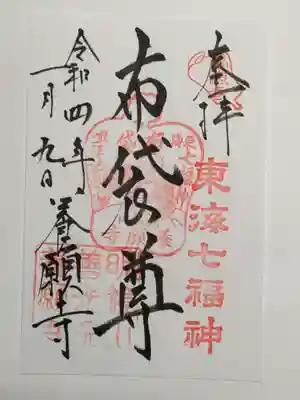 奉拝
東海七福神
布袋尊
令和四年
一月九日
養願寺